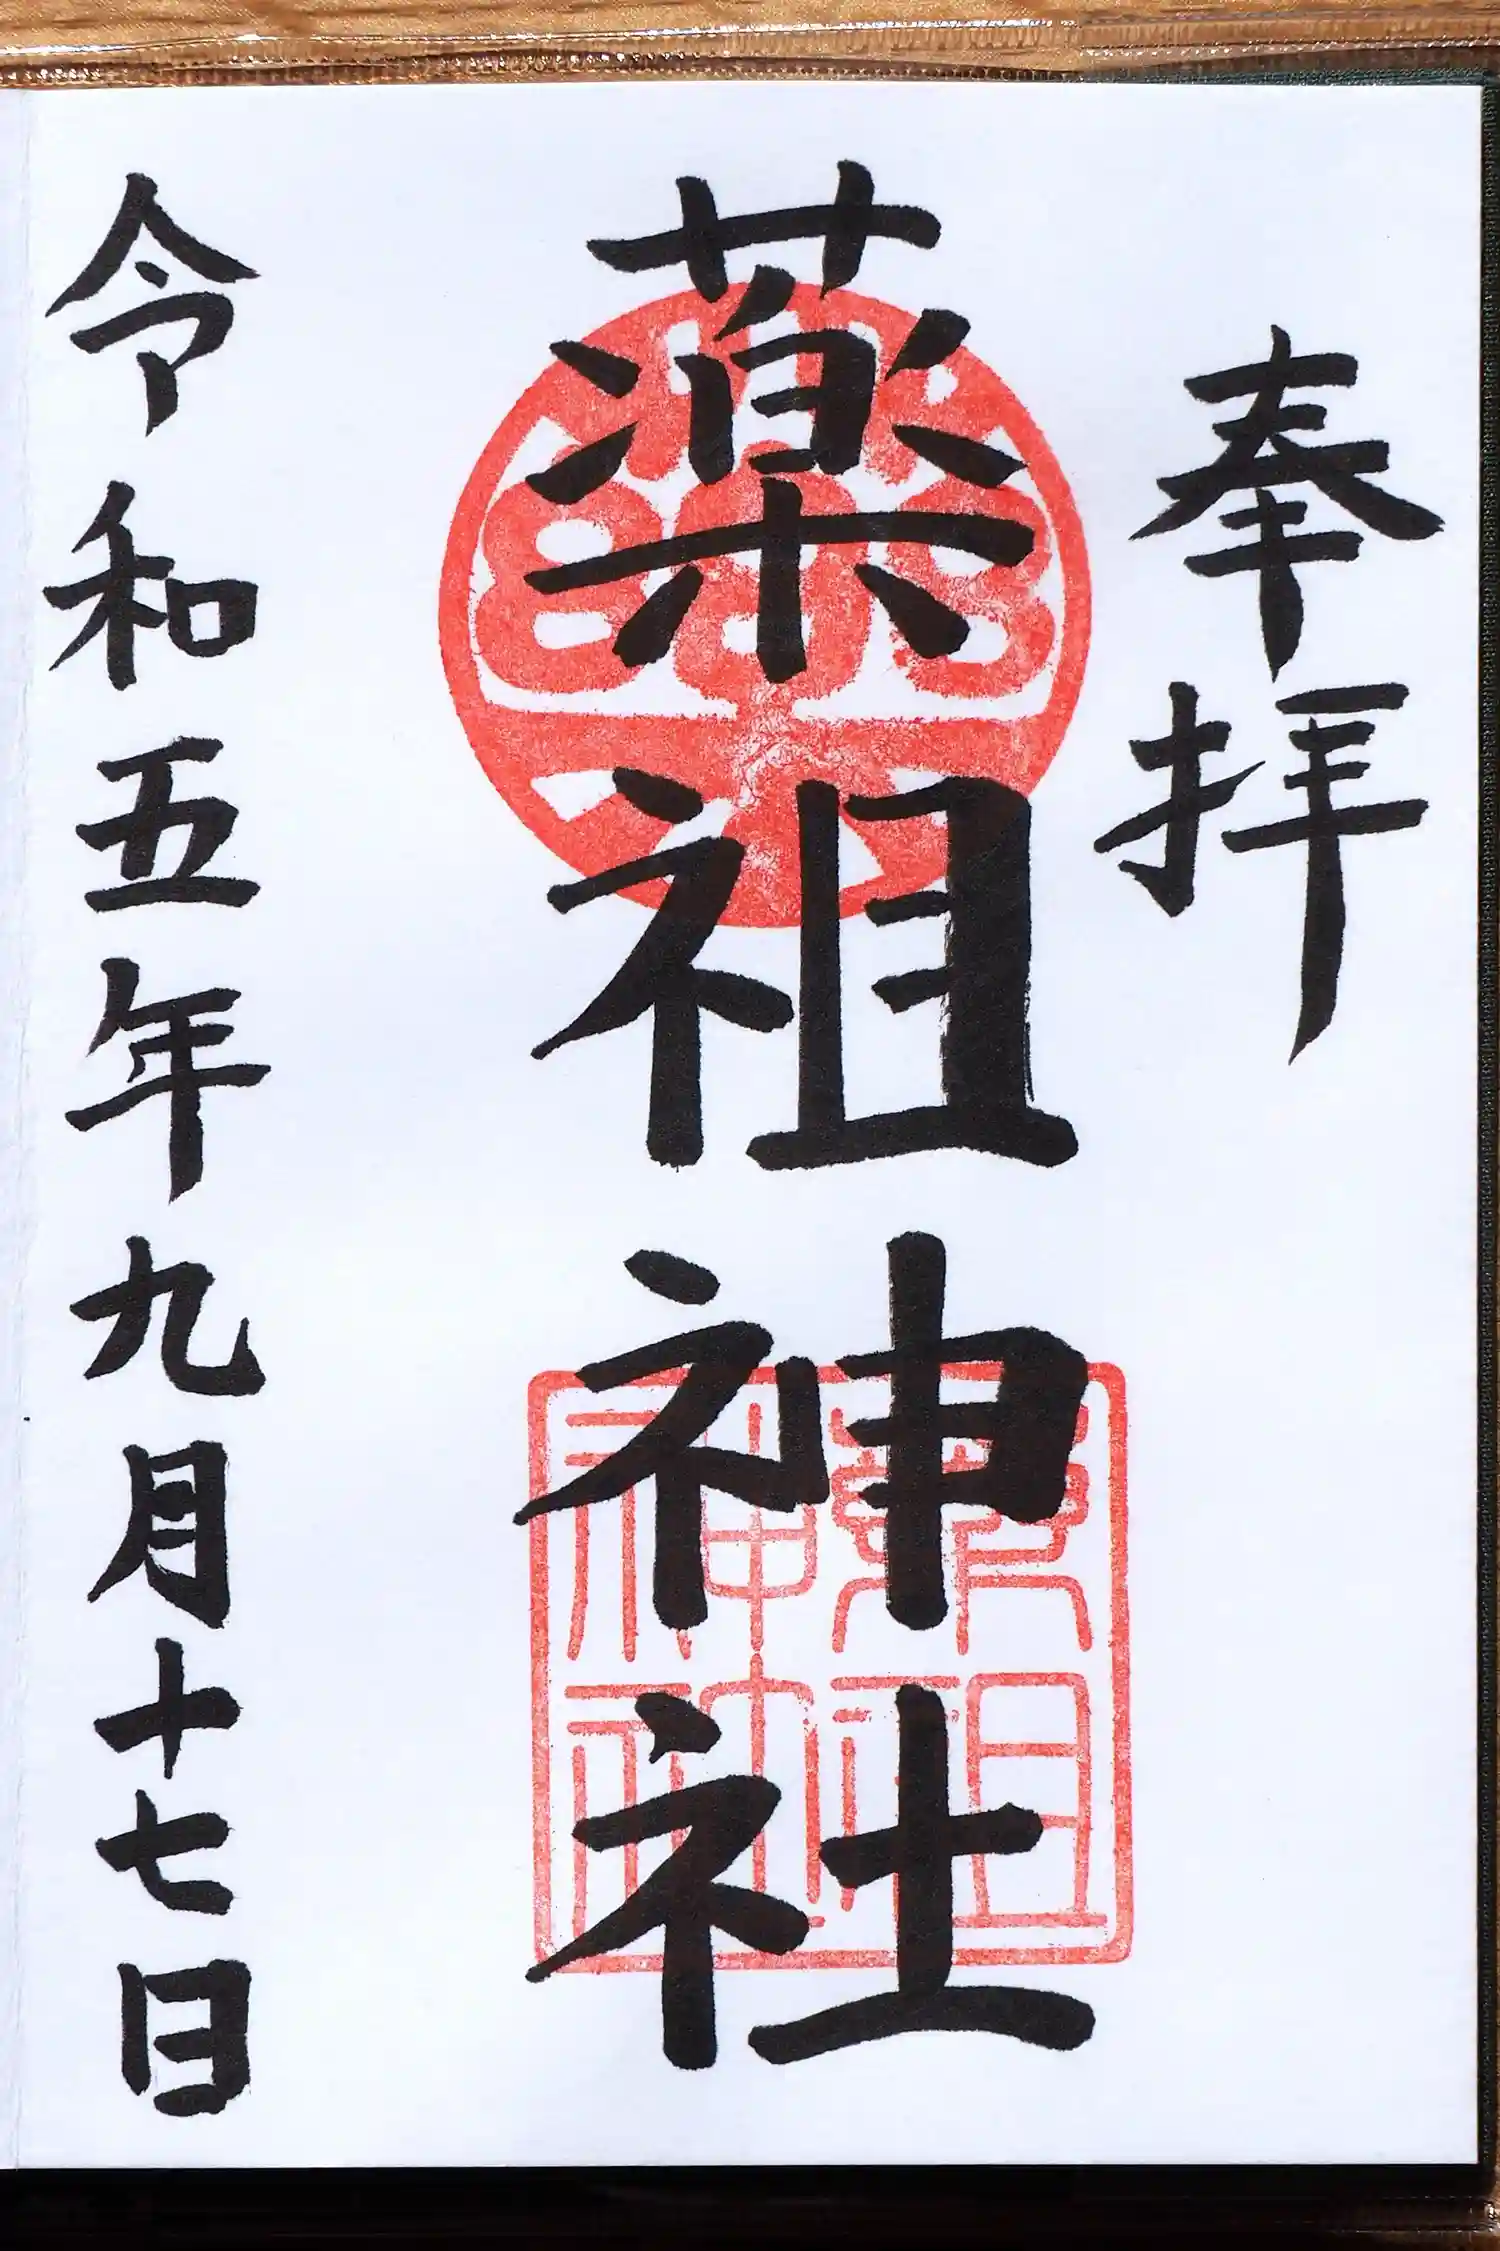 奉拝
薬祖神社
令和五年九月十七日
薬祖
神社